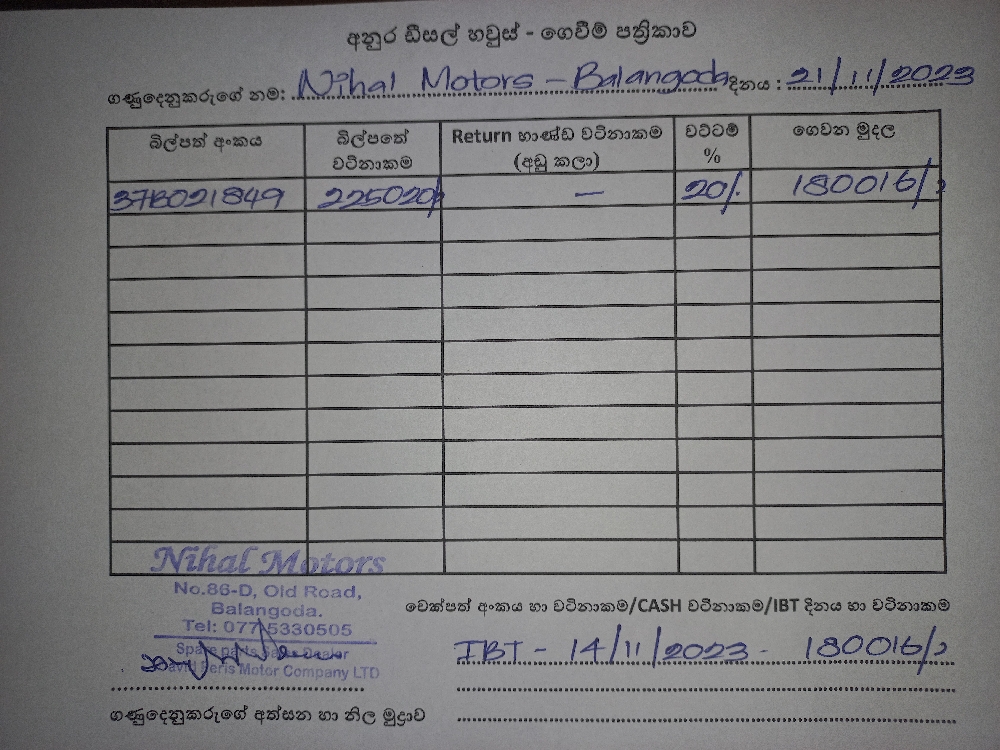 අනුර ඩීසල් හවුස් - ගෙවීම් පත්‍රිකාව
ගණුදෙනුකරුගේ නම: Nihal Motors - Balangoda දිනය : 21/11/2023
බිල්පත් අංකය බිල්පතේ වටිනාකම Return භාණ්ඩ වටිනාකම (අඩු කලා) වට්ටම් % ගෙවන මුදල
37B021849 225020/- — 20/. 180016/=
Nihal Motors
No.86-D, Old Road,
Balangoda.
Tel: 077 5330505
Spare parts Sales Dealer
David Peiris Motor Company LTD
ගණුදෙනුකරුගේ අත්සන හා නිල මුද්‍රාව
චෙක්පත් අංකය හා වටිනාකම/CASH වටිනාකම/IBT දිනය හා වටිනාකම
IBT - 14/11/2023 - 180016/=